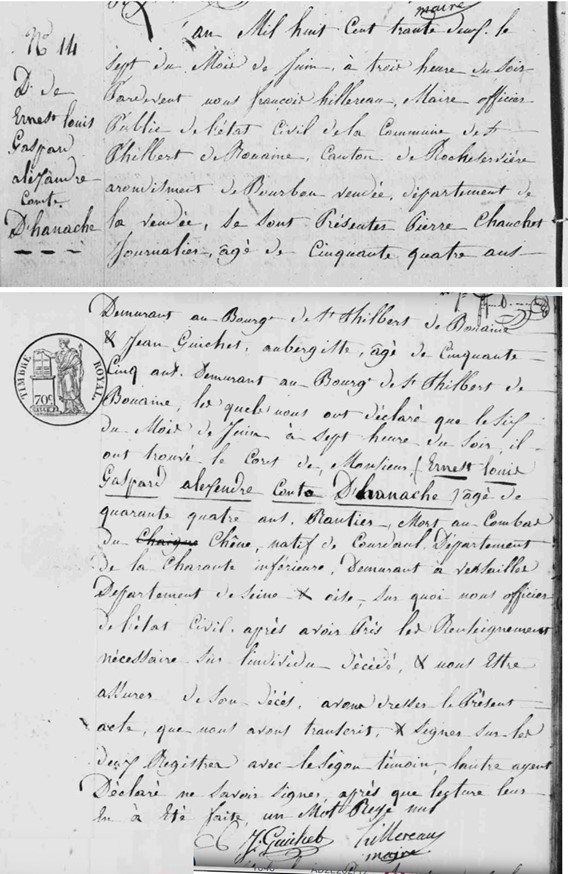 maire
N° 14
D. de
Ernest louis
Gaspard
alexandre
Comte
D'hanache
au Mil huit Cent trante deuf. le
sept du Mois de Juin, à trois heure du soir
Pardevent nous francois hillereau, Maire officier
Public de l'état Civil de la Commune de St
Philbert de Bouaine, Canton de Rocheservière
arondisment de Bourbon vendée, département de
la vendée, se sont Présentes Pierre Chauchet
Journalier, âgé de Cinquante quatre ans
Demurant au Bourg de St Philbert de Bouaine
& Jean Guichet, aubergiste, âgé de Cinquante
Cinq ans. Demurant au Bourg de St Philbert de
Bouaine, les quels nous ont déclaré que le six
du Mois de Juin à sept heure du Soir, il
ont trouvé le Cors de Monsieur (Ernest louis
Gaspard alexendre Conte D'hanache) âgé de
quarante quatre ans, Rantier, Mort au Combat
du Chaigne Chêne, natif de Département
de la Charante inférieure, Demurant à versailles
Département de seine & oise, sur quoi nous officier
de l'état Civil, après avoir Pris les Renseignement
nécessaire sur l'individu décédé, & nousEttre
assures de son décés, avons dresser le Présent
acte, que nous avons transcrit, & Signer sur les
deux Registrer avec le segon témoin, lautre ayent
Déclaré ne savoir signer, après que lecture leur
En à Eté faite, un Mot Reyé nul
J. Guichet hillereau
maire
TIMBRE ROYAL
70c